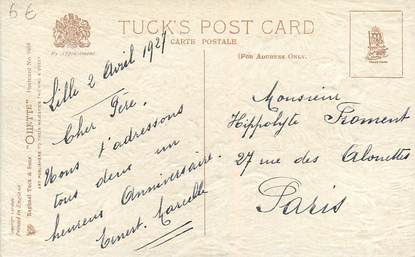 6€
TUCK'S POST CARD
CARTE POSTALE
By Appointment.
(FOR ADDRESS ONLY.)
Lille 2 Avril 1927
Cher Père.
Nous t'adressons
tous deux un
heureux Anniversaire.
Ernest. Marcelle
Monsieur
Hippolyte Froment
27 rue des Alouettes
Paris
Raphael Tuck & Sons' "OILETTE"
ART PUBLISHERS TO THEIR MAJESTIES THE KING & QUEEN
Printed in England.